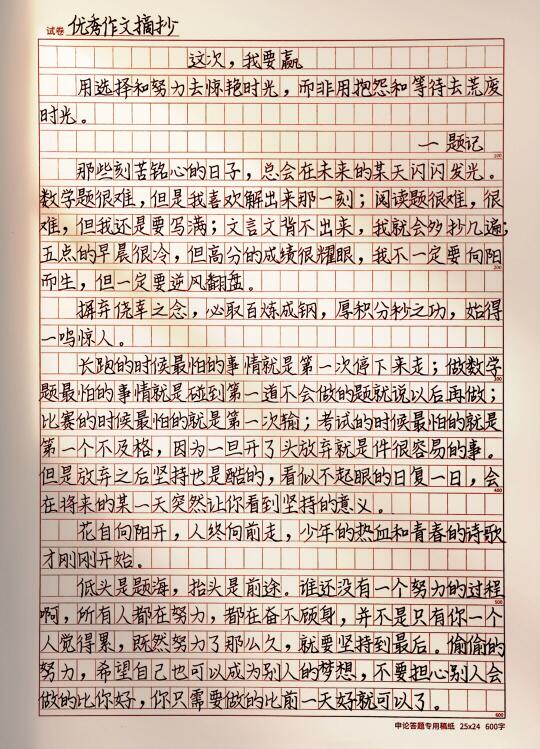 试卷 优秀作文摘抄
这次，我要赢
用选择和努力去惊艳时光，而非用抱怨和等待去荒废
时光。
一 题记
100
那些刻苦铭心的日子，总会在未来的某天闪闪发光。
数学题很难，但是我喜欢解出来那一刻；阅读题很难，很
难，但我还是要写满；文言文背不出来，我就会多抄几遍；
五点的早晨很冷，但高分的成绩很耀眼，我不一定要向阳
200
而生，但一定要逆风翻盘。
摒弃侥幸之念，必取百炼成钢，厚积分秒之功，始得
一鸣惊人。
长跑的时候最怕的事情就是第一次停下来走；做数学
300
题最怕的事情就是碰到第一道不会做的题就说以后再做；
比赛的时候最怕的就是第一次输；考试的时候最怕的就是
第一个不及格，因为一旦开了头放弃就是件很容易的事。
但是放弃之后坚持也是酷的，看似不起眼的日复一日，会
400
在将来的某一天突然让你看到坚持的意义。
花自向阳开，人终向前走，少年的热血和青春的诗歌
才刚刚开始。
低头是题海，抬头是前途。谁还没有一个努力的过程
500
啊，所有人都在努力，都在奋不顾身，并不是只有你一个
人觉得累，既然努力了那么久，就要坚持到最后。偷偷的
努力，希望自己也可以成为别人的梦想，不要担心别人会
做的比你好，你只需要做的比前一天好就可以了。
600
申论答题专用稿纸 25x24 600字